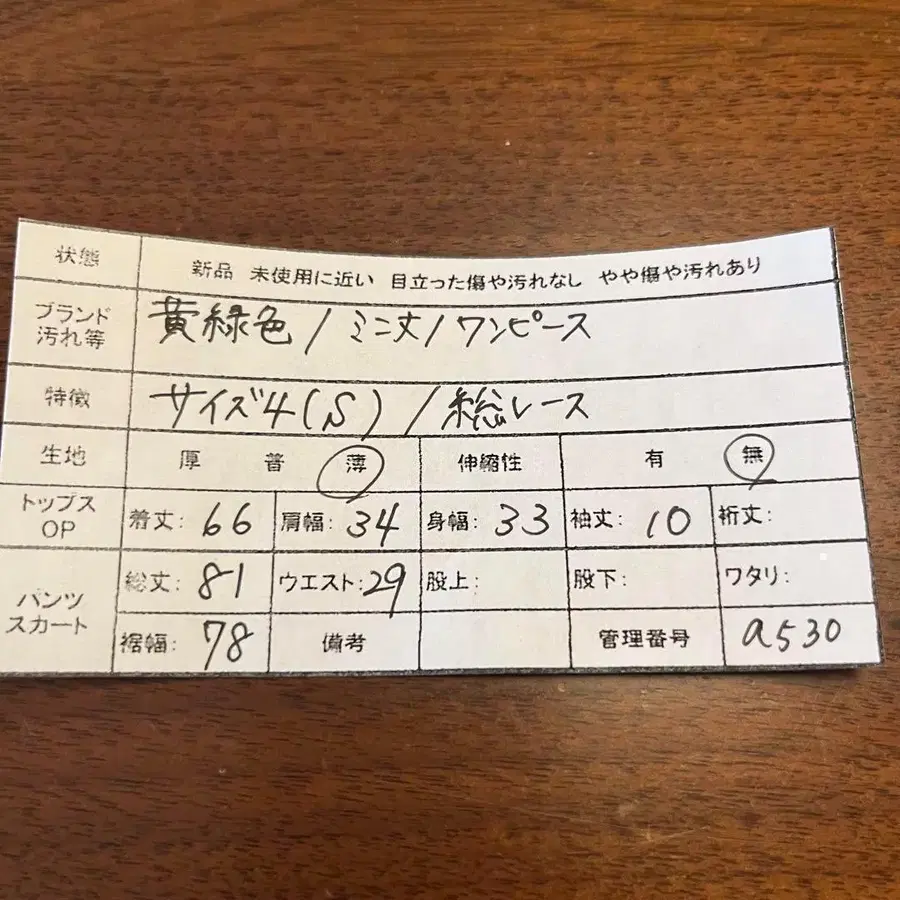 状態 新品 未使用に近い 目立った傷や汚れなし やや傷や汚れあり
ブランド
汚れ等 黄緑色/ミニ丈/ワンピース
特徴 サイズ4(S)/総レース
生地 厚 普 薄 伸縮性 有 無
トップス
OP 着丈: 66 肩幅: 34 身幅: 33 袖丈: 10 裄丈:
パンツ
スカート
総丈: 81 ウエスト: 29 股上: 股下: ワタリ:
裾幅: 78 備考 管理番号 a530